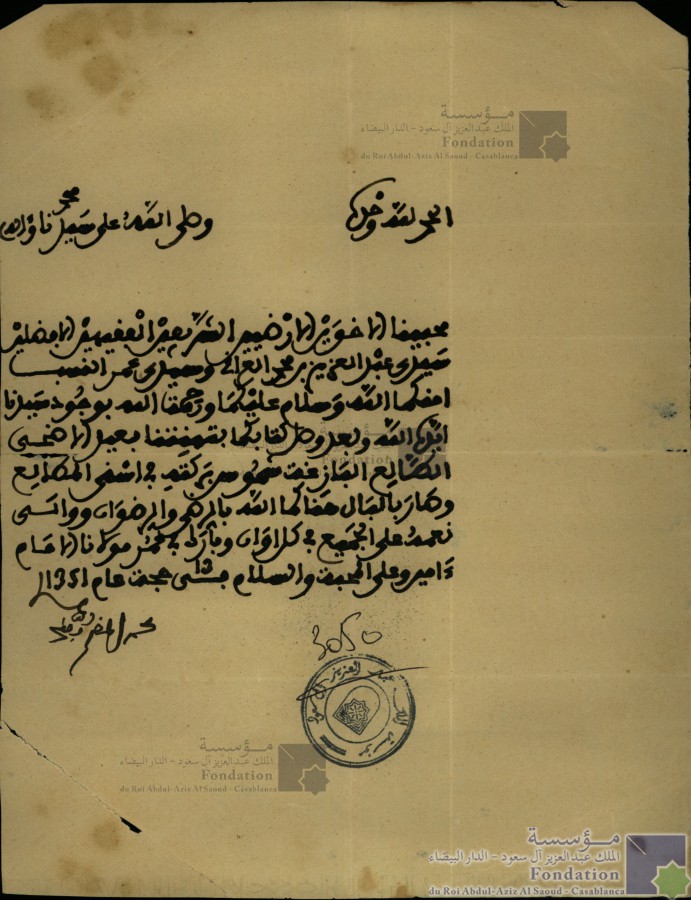 مؤسسة
الملك عبد العزيز آل سعود - الدار البيضاء
Fondation
du Roi Abdul-Aziz Al Saoud - Casablanca
الحمد لله وحده
وصلى الله على سيدنا محمد وآله
محبينا الأخوين الأرضيين الشريفين الفقيهين الأفضلين
سيدي عبد العزيز بن محمد وسيدي عمر
أمنكما الله وسلام عليكما ورحمة الله بوجود سيدنا
أيده الله وبعد وصل كتابكما بتهنئتنا بعيد الأضحى
الطالع البازغة شموس بركته في أسنى المطالع
وصار بالبال هنأكما الله بالرضى والرضوان ووالى
نعمه على الجميع في كل أوان وبارك في عمر مولانا الإمام
ءامين وعلى المحبة والسلام في حجة عام 1351
3050
عبد العزيز آل سعود
مؤسسة
الملك عبد العزيز آل سعود - الدار البيضاء
Fondation
du Roi Abdul-Aziz Al Saoud - Casablanca
مؤسسة
الملك عبد العزيز آل سعود - الدار البيضاء
Fondation
du Roi Abdul-Aziz Al Saoud - Casablanca